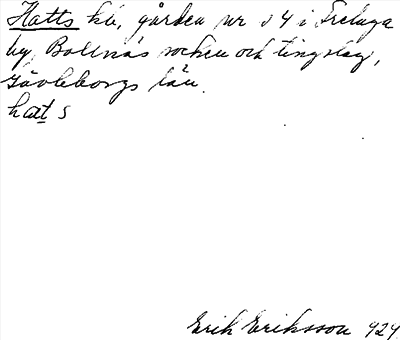 Hatts kb, gården nr 54 i Freluga
by, Bollnäs socken och tingslag,
Gävleborgs län.
hatt s
Erik Eriksson 1929